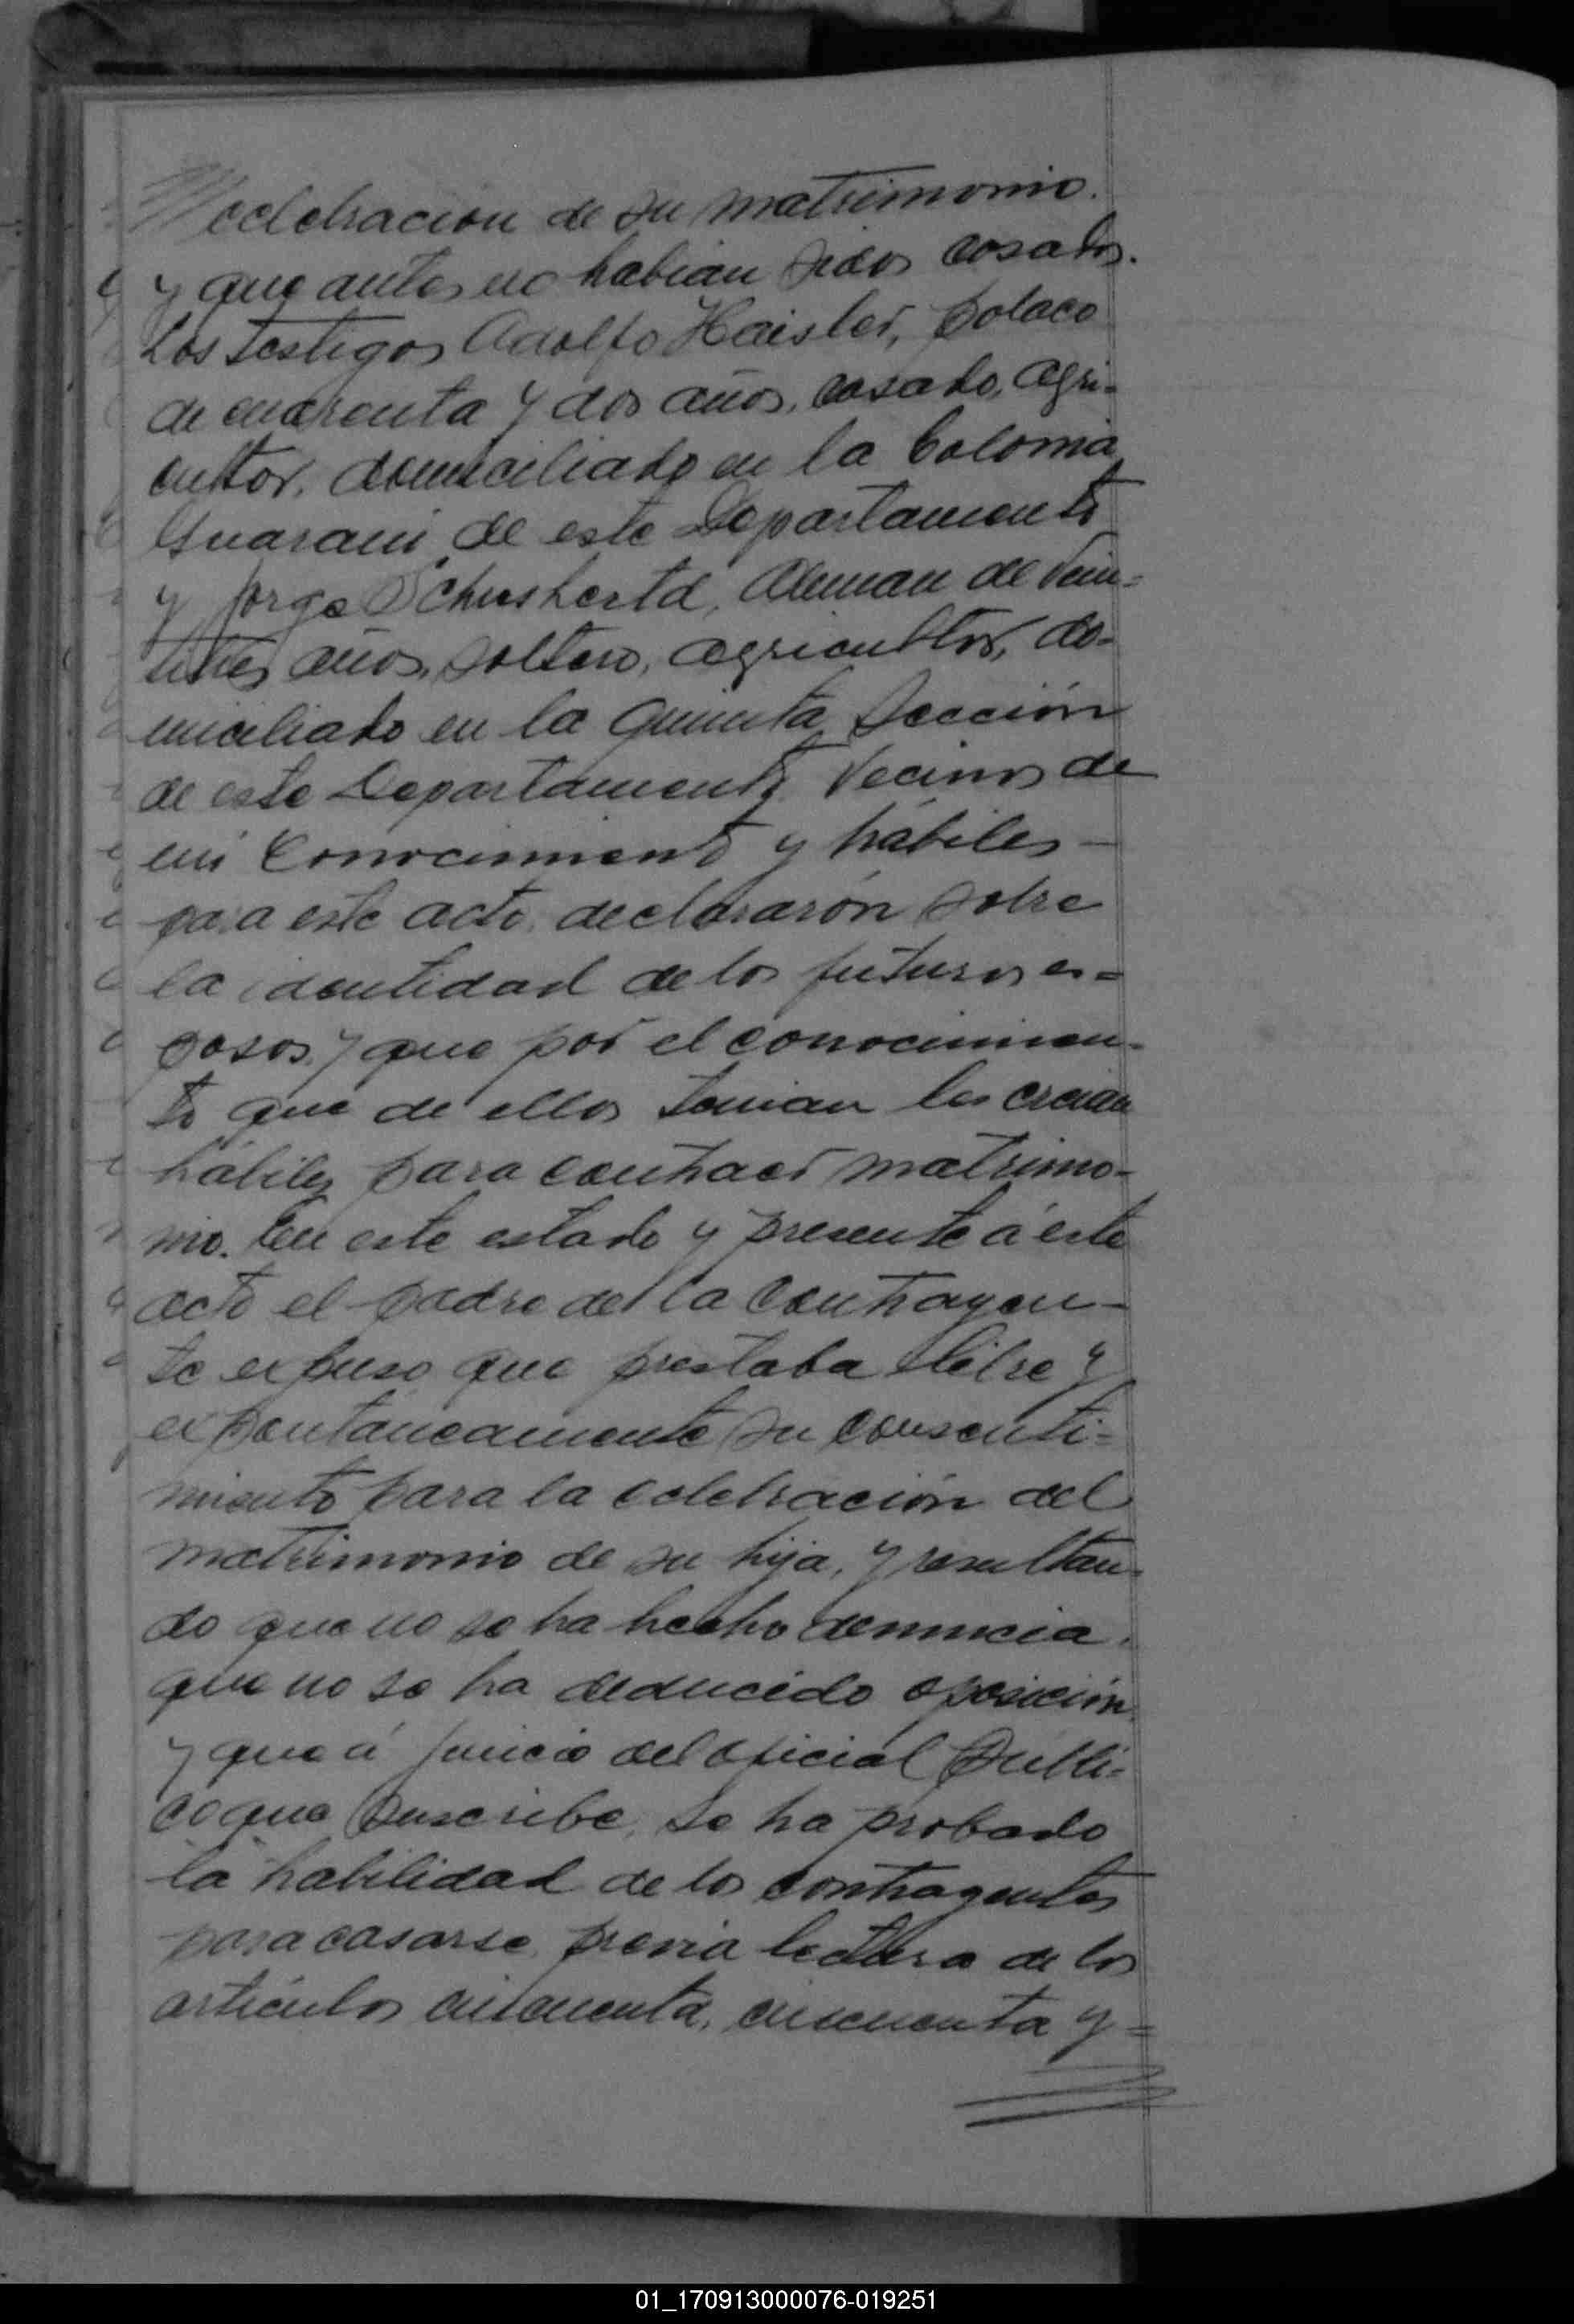 celebracion de su matrimonio.
y que antes no habian sidos casados.
Los testigos Adolfo Haisler, polaco
de cuarenta y dos años, casado, agri-
cultor, domiciliado en la Colonia
Guarani de este Departamento
y Jorge Schusherta, Aleman de vein-
titres años, soltero, agricultor, do-
miciliado en la quinta Sección
de este Departamento vecinos de
mi Conocimiento y hábiles -
para este acto, declararón sobre
la identidad de los futuros es=
posos, y que por el conocimien-
to que de ellos tenian los creian
hábiles para contraer matrimo-
nio. En este estado y presente á este
acto el padre de la Contrayen-
te expuso que prestaba libre y
expontaneamente su consenti=
miento para la celebración del
matrimonio de su hija, y resultan-
do que no se ha hecho denuncia,
que no se ha deducido oposición
y que á juicio del Oficial Públi=
co que suscribe, se ha probado
la habilidad de los contrayentes
para casarse, previa lectura de los
artículos cincuenta, cincuenta y =
01_170913000076-019251